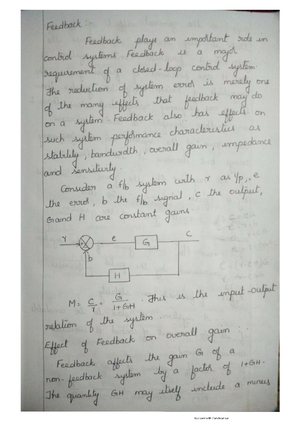 Feedback :-
Feedback plays an important role in
control systems Feedback is a major
requirement of a closed-loop control system.
The reduction of system error is merely one
of the many effects that feedback may do
on a system. Feedback also has effects on
such system performance characteristics as
stability, bandwidth, overall gain, impedance
and sensitivity.
Consider a f/b system with r as i/p, e
the error, b the f/b signal, c the output,
G and H are constant gains.
r e G C
b
H
M = C/r = G/1+GH. This is the input-output
relation of the system.
Effect of Feedback on overall gain
Feedback affects the gain G of a
non-feedback system by a factor of 1+GH.
The quantity GH may itself include a minus